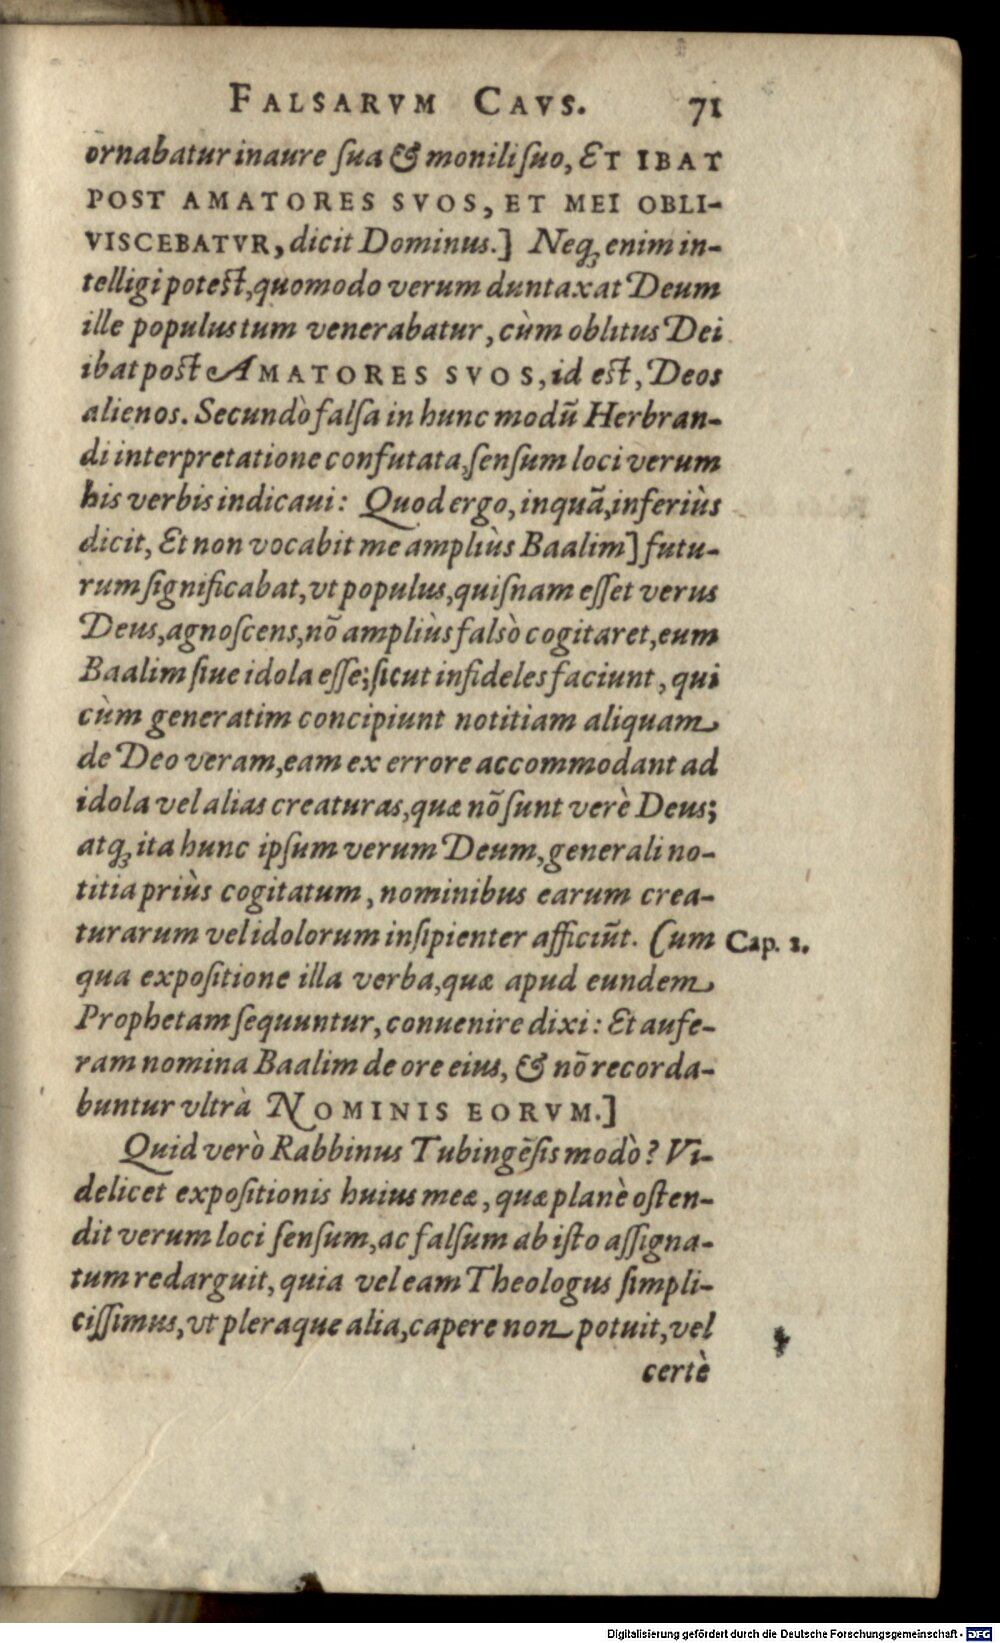 FALSARVM CAVS. 71
ornabatur inaure ſua & monili ſuo, ET IBAT
POST AMATORES SVOS, ET MEI OBLI-
VISCEBATVR, dicit Dominus.] Neq; enim in-
telligi poteſt, quomodo verum duntaxat Deum
ille populus tum venerabatur, cùm oblitus Dei
ibat poſt AMATORES SVOS, id eſt, Deos
alienos. Secundò falſa in hunc modū Herbran-
di interpretatione confutata, ſenſum loci verum
his verbis indicaui: Quod ergo, inquā, inferiùs
dicit, Et non vocabit me ampliùs Baalim] futu-
rum ſignificabat, vt populus, quiſnam eſſet verus
Deus, agnoſcens, nō ampliùs falsò cogitaret, eum
Baalim ſiue idola eſſe; ſicut infideles faciunt, qui
cùm generatim concipiunt notitiam aliquam
de Deo veram, eam ex errore accommodant ad
idola vel alias creaturas, quæ nō ſunt verè Deus;
atq; ita hunc ipſum verum Deum, generali no-
titia priùs cogitatum, nominibus earum crea-
turarum vel idolorum inſipienter afficiūt. Cum Cap. 2.
qua expoſitione illa verba, quæ apud eundem
Prophetam ſequuntur, conuenire dixi: Et aufe-
ram nomina Baalim de ore eius, & nō recorda-
buntur vltrà NOMINIS EORVM.]
Quid verò Rabbinus Tubingēſis modò? Vi-
delicet expoſitionis huius meæ, quæ planè oſten-
dit verum loci ſenſum, ac falſum ab iſto aſſigna-
tum redarguit, quia vel eam Theologus ſimpli-
ciſſimus, vt pleraque alia, capere non potuit, vel
certè
Digitalisierung gefördert durch die Deutsche Forschungsgemeinschaft - DFG